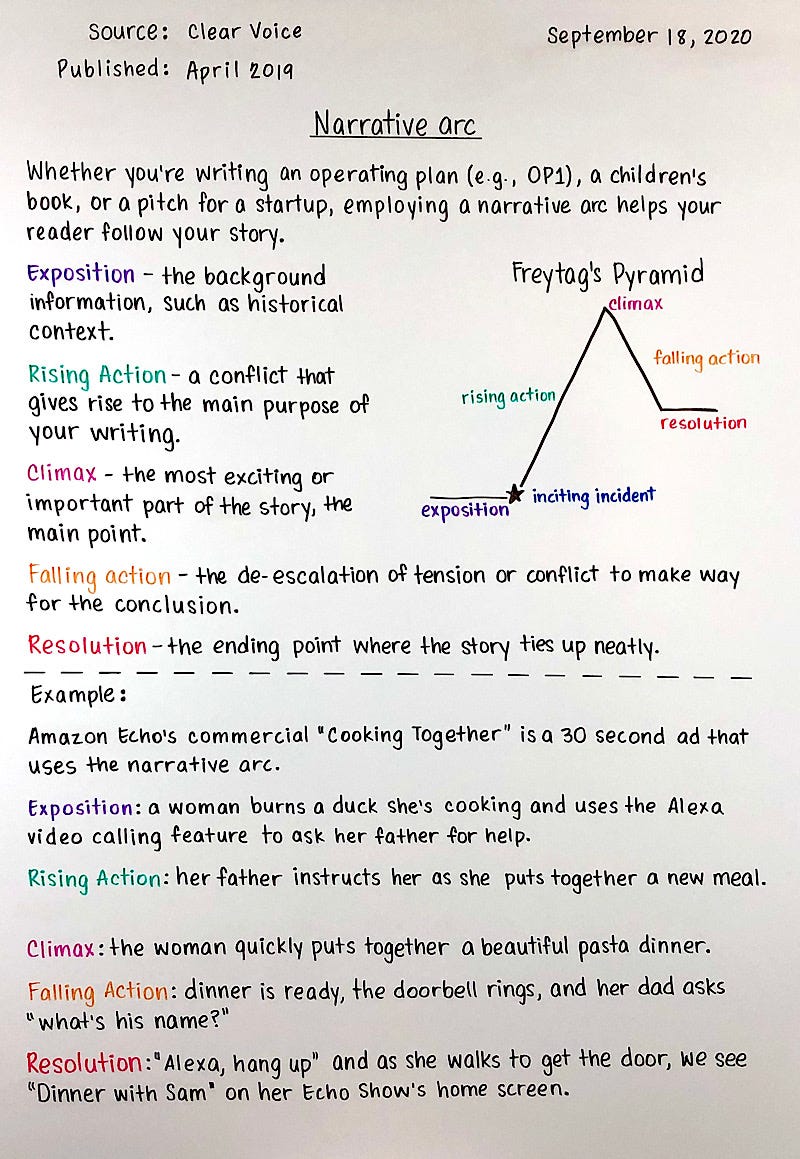 Source: Clear Voice
September 18, 2020
Published: April 2019
Narrative arc
Whether you're writing an operating plan (e.g., OP1), a children's
book, or a pitch for a startup, employing a narrative arc helps your
reader follow your story.
Exposition - the background
information, such as historical
context.
Rising Action - a conflict that
gives rise to the main purpose of
your writing.
Climax - the most exciting or
important part of the story, the
main point.
Freytag's Pyramid
climax
falling action
rising action
resolution
inciting incident
exposition
Falling action - the de-escalation of tension or conflict to make way
for the conclusion.
Resolution - the ending point where the story ties up neatly.
Example:
Amazon Echo's commercial "Cooking Together" is a 30 second ad that
uses the narrative arc.
Exposition: a woman burns a duck she's cooking and uses the Alexa
video calling feature to ask her father for help.
Rising Action: her father instructs her as she puts together a new meal.
Climax: the woman quickly puts together a beautiful pasta dinner.
Falling Action: dinner is ready, the doorbell rings, and her dad asks
"what's his name?"
Resolution: "Alexa, hang up" and as she walks to get the door, we see
"Dinner with Sam" on her Echo Show's home screen.